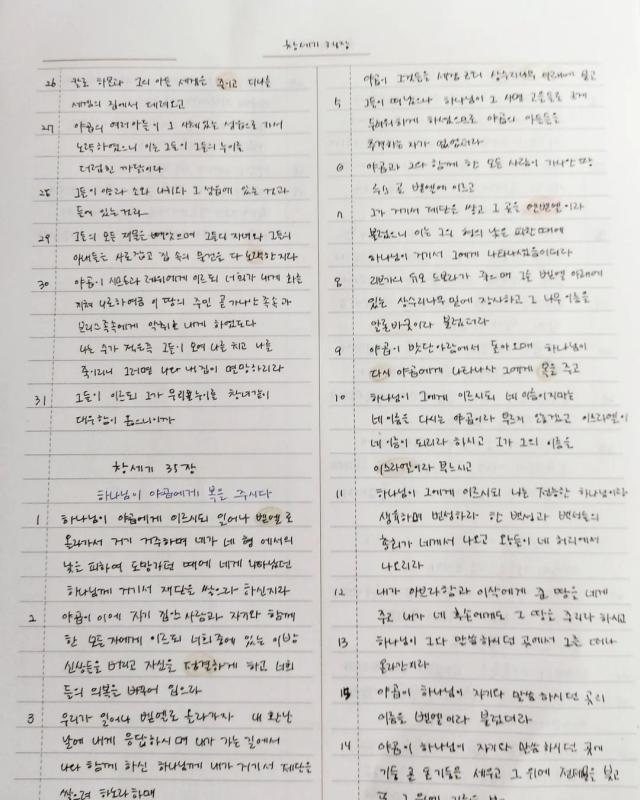 창세기 34장
26 칼로 하몰과 그의 아들 세겜을 죽이고 디나를
세겜의 집에서 데려오고
27 야곱의 여러 아들이 그 시체 있는 성읍으로 가서
노략하였으니 이는 그들이 그들의 누이를
더럽힌 까닭이라
28 그들이 양과 소와 나귀와 그 성읍에 있는 것과
들에 있는 것과
29 그들의 모든 재물을 빼앗으며 그들의 자녀와 그들의
아내들을 사로잡고 집 속의 물건을 다 노략한지라
30 야곱이 시므온과 레위에게 이르되 너희가 내게 화를
끼쳐 나로 하여금 이 땅의 주민 곧 가나안 족속과
브리스 족속에게 악취를 내게 하였도다
나는 수가 적은즉 그들이 모여 나를 치고 나를
죽이리니 그러면 나와 내 집이 멸망하리라
31 그들이 이르되 그가 우리 누이를 창녀같이
대우함이 옳으니이까
창세기 35장
하나님이 야곱에게 복을 주시다
1 하나님이 야곱에게 이르시되 일어나 벧엘로
올라가서 거기 거주하며 네가 네 형 에서의
낯을 피하여 도망가던 때에 네게 나타났던
하나님께 거기서 제단을 쌓으라 하신지라
2 야곱이 이에 자기 집안 사람과 자기와 함께
한 모든 자에게 이르되 너희 중에 있는 이방
신상들을 버리고 자신을 정결하게 하고 너희
들의 의복을 바꾸어 입으라
3 우리가 일어나 벧엘로 올라가자 내 환난
날에 내게 응답하시며 내가 가는 길에서
나와 함께 하신 하나님께 내가 거기서 제단을
쌓으려 하노라 하매
야곱이 그것들을 세겜 근처 상수리나무 아래에 묻고
5 그들이 떠났으나 하나님이 그 사면 고을들로 크게
두려워하게 하셨으므로 야곱의 아들들을
추격하는 자가 없었더라
6 야곱과 그와 함께 한 모든 사람이 가나안 땅
루스 곧 벧엘에 이르고
7 그가 거기서 제단을 쌓고 그 곳을 엘벧엘이라
불렀으니 이는 그의 형의 낯을 피할 때에
하나님이 거기서 그에게 나타나셨음이더라
8 리브가의 유모 드보라가 죽으매 그를 벧엘 아래에
있는 상수리나무 밑에 장사하고 그 나무 이름을
알론바굿이라 불렀더라
9 야곱이 밧단아람에서 돌아오매 하나님이
다시 야곱에게 나타나사 그에게 복을 주고
10 하나님이 그에게 이르시되 네 이름이 지마는
네 이름을 다시는 야곱이라 부르지 않겠고 이스라엘이
네 이름이 되리라 하시고 그가 그의 이름을
이스라엘이라 부르시고
11 하나님이 그에게 이르시되 나는 전능한 하나님이라
생육하며 번성하라 한 백성과 백성들의
총회가 네게서 나오고 왕들이 네 허리에서
나오리라
12 내가 아브라함과 이삭에게 준 땅을 네게
주고 내가 네 후손에게도 그 땅을 주리라 하시고
13 하나님이 그와 말씀하시던 곳에서 그를 떠나
올라가시는지라
15 야곱이 하나님이 자기와 말씀하시던 곳의
이름을 벧엘이라 불렀더라
14 야곱이 하나님이 자기와 말씀하시던 곳에
기둥 곧 돌 기둥을 세우고 그 위에 전제물을 붓고
또 그 위에